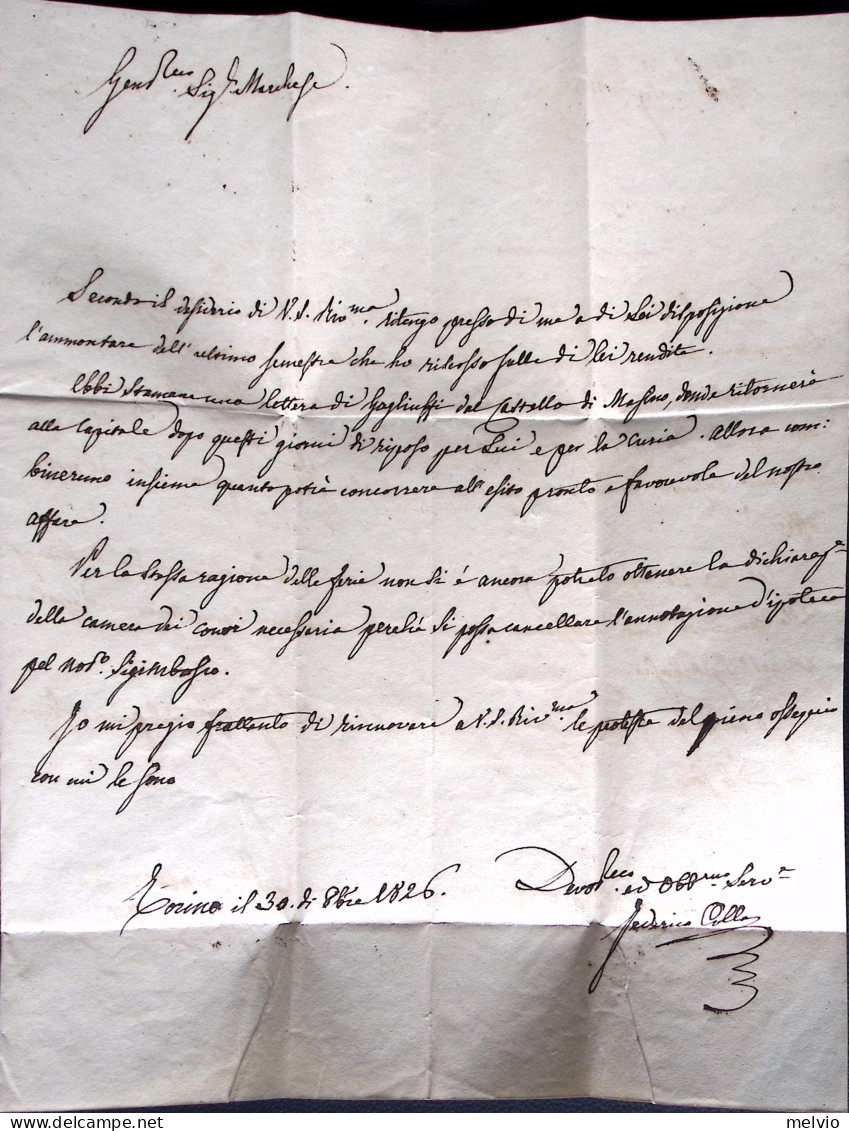 Sig.r Marchese.
Secondo il desiderio di V. S. ritengo presso di me a di Lei disposizione
l'ammontare dell'ultimo semestre che ho riscosso sulle di lei rendite.
Ebbi stamane una lettera di Gagliuffi dal Castello di Masino, donde ritornerà
alla Capitale dopo questi giorni di riposo per Lui e per la Curia. Allora com:
bineremo insieme quanto potrà concorrere all'esito pronto e favorevole del nostro
affare.
Per la stessa ragione delle ferie non si è ancora potuto ottenere la
della camera dei conti necessaria perchè si possa cancellare l'annotazione d'ipoteca
pel
Io mi pregio frattanto di rinnovare a V. S. le proteste del pieno ossequio
con cui le sono
Torino il 30 di 8bre 1826.
ed Obb.mo Serv.e
Federico Colla
melvio